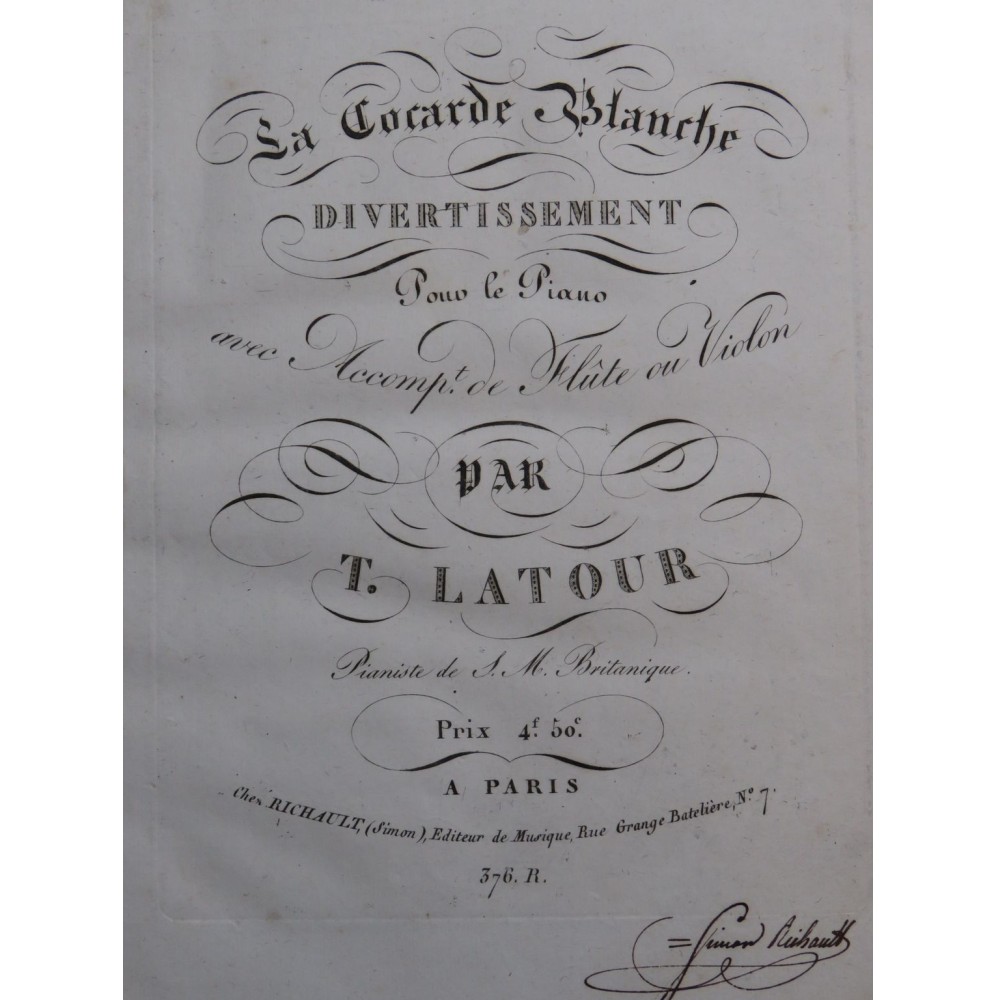 La Cocarde Blanche
DIVERTISSEMENT
Pour le Piano
avec Accompt. de Flûte ou Violon
PAR
T. LATOUR
Pianiste de S. M. Britanique.
Prix 4f. 50c.
A PARIS
Chez RICHAULT, (Simon), Editeur de Musique, Rue Grange Batelière, No. 7.
376. R.
= Simon Richault